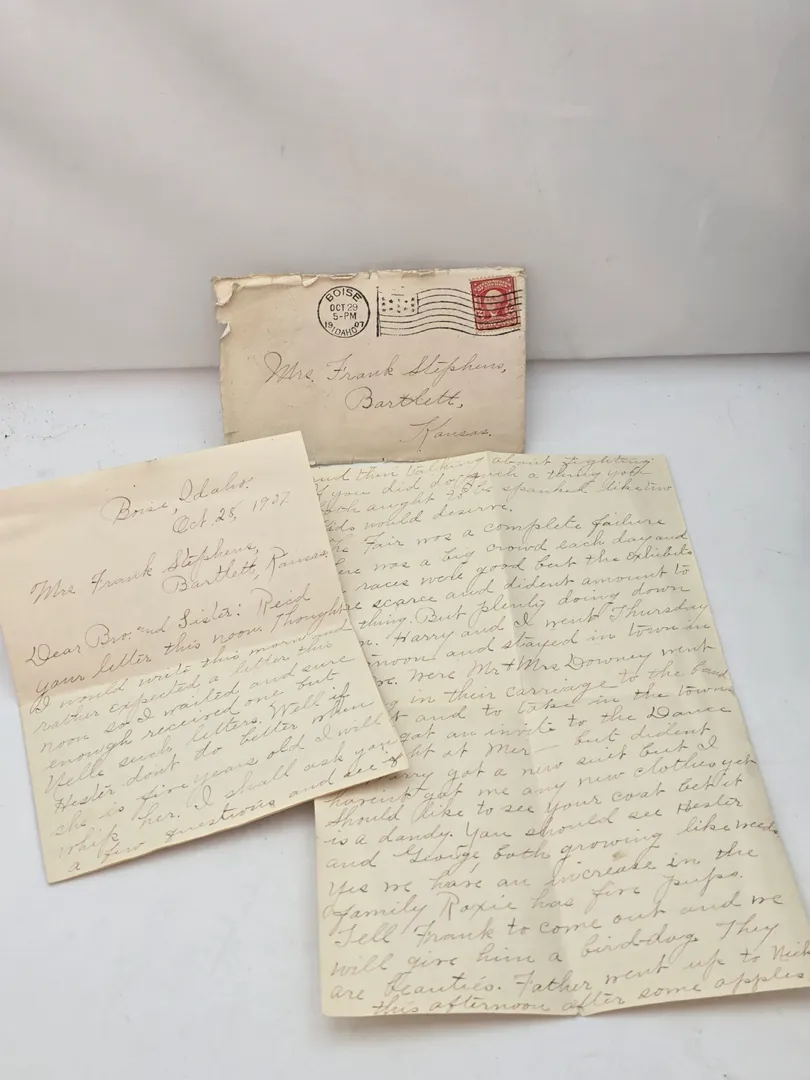 BOISE
OCT 29
5-PM
IDAHO 07
Mrs. Frank Stephens,
Bartlett,
Kansas.
Boise, Idaho.
Oct. 28, 1907
Mrs Frank Stephens,
Bartlett, Kansas,
Dear Bro. and Sister: Recd
your letter this noon. Thought
I would write this morn and
rather expected a letter this
noon so I waited and sure
enough received one but
Helle such letters. Well if
Hester dont do better when
she is five years old I will
whip her. I shall ask you
a few questions and see if
and then talking about fighting.
if you did do such a thing you
both aught to be spanked like two
kids would deserve.
The Fair was a complete failure
there was a big crowd each day and
races were good but the exhibits
scarce and dident amount to
thing. But plenty doing down
Harry and I went Thursday
noon and stayed in town in
Mr & Mrs Downey went
in their carriage to the band
and to take in the town
got an invite to the Dance
at Mer— but dident
Harry got a new suit but I
havent got me any new clothes yet
Should like to see your coat bet it
is a dandy. You should see Hester
and George both growing like weeds
Yes we have an increase in the
family Roxie has five pups.
Tell Frank to come out and we
will give him a bird-dog. They
are beauties. Father went up to Nick
this afternoon after some apples